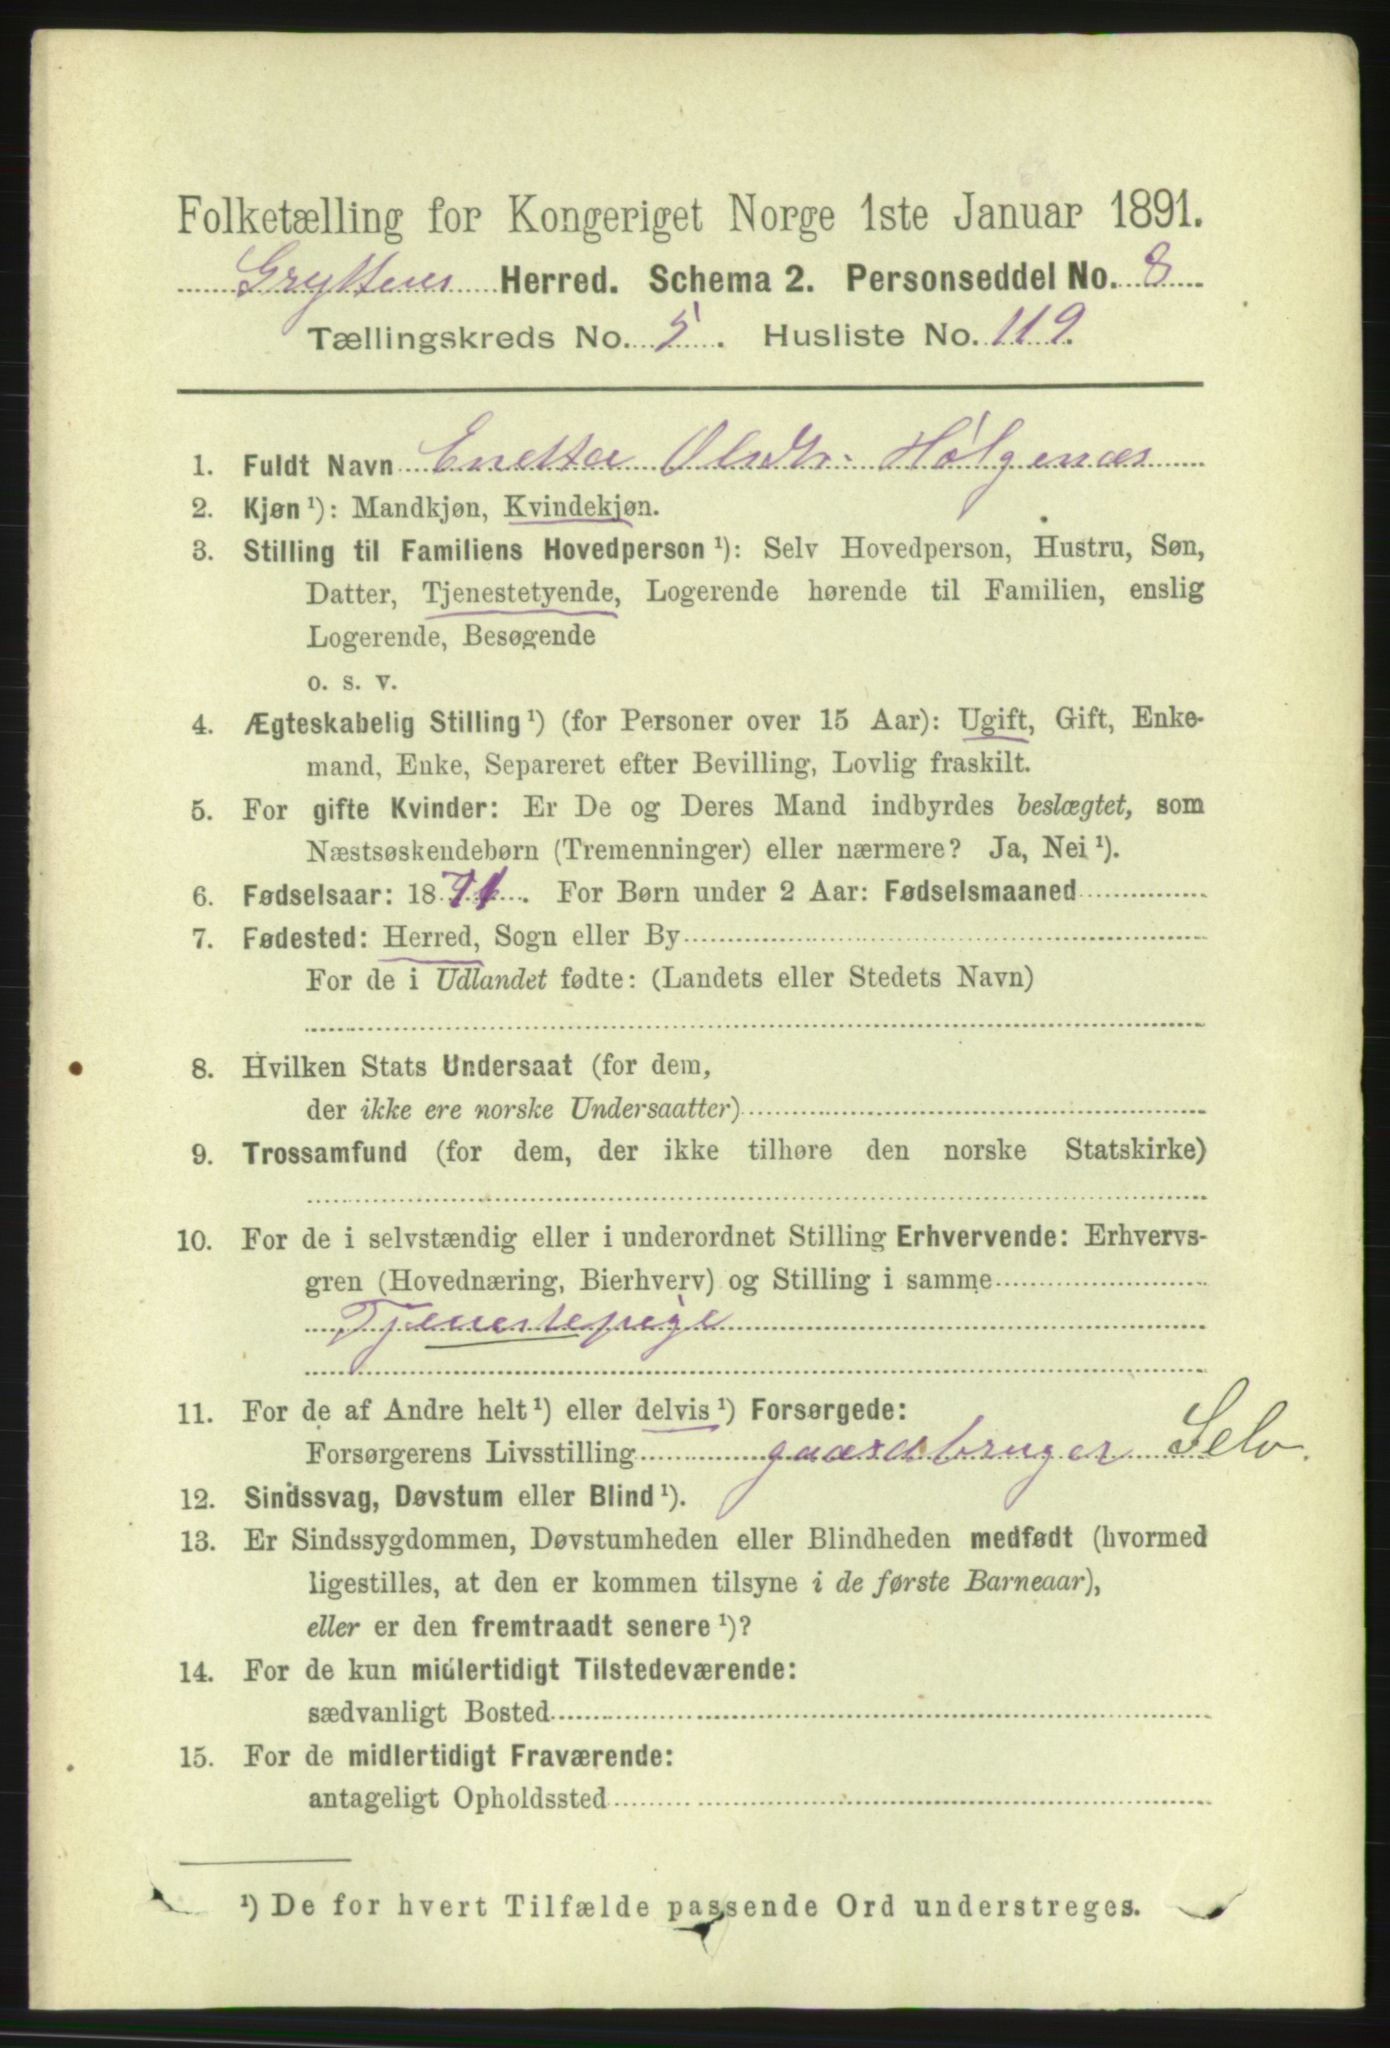 Folketælling for Kongeriget Norge 1ste Januar 1891.
Gryttens Herred. Schema 2. Personseddel No. 8
Tællingskreds No. 5. Husliste No. 119.
1. Fuldt Navn Enetta Olsdtr. Hølgenæs
2. Kjøn ¹): Mandkjøn, Kvindekjøn.
3. Stilling til Familiens Hovedperson ¹): Selv Hovedperson, Hustru, Søn,
Datter, Tjenestetyende, Logerende hørende til Familien, enslig
Logerende, Besøgende
o. s. v.
4. Ægteskabelig Stilling ¹) (for Personer over 15 Aar): Ugift, Gift, Enke-
mand, Enke, Separeret efter Bevilling, Lovlig fraskilt.
5. For gifte Kvinder: Er De og Deres Mand indbyrdes beslægtet, som
Næstsøskendebørn (Tremenninger) eller nærmere? Ja, Nei ¹).
6. Fødselsaar: 1871. For Børn under 2 Aar: Fødselsmaaned
7. Fødested: Herred, Sogn eller By
For de i Udlandet fødte: (Landets eller Stedets Navn)
8. Hvilken Stats Undersaat (for dem,
der ikke ere norske Undersaatter)
9. Trossamfund (for dem, der ikke tilhøre den norske Statskirke)
10. For de i selvstændig eller i underordnet Stilling Erhvervende: Erhvervs-
gren (Hovednæring, Bierhverv) og Stilling i samme
Tjenestepige
11. For de af Andre helt ¹) eller delvis ¹) Forsørgede:
Forsørgerens Livsstilling gaardbruger Selv.
12. Sindssvag, Døvstum eller Blind ¹).
13. Er Sindssygdommen, Døvstumheden eller Blindheden medfødt (hvormed
ligestilles, at den er kommen tilsyne i de første Barneaar),
eller er den fremtraadt senere ¹)?
14. For de kun midlertidigt Tilstedeværende:
sædvanligt Bosted
15. For de midlertidigt Fraværende:
antageligt Opholdssted
¹) De for hvert Tilfælde passende Ord understreges.